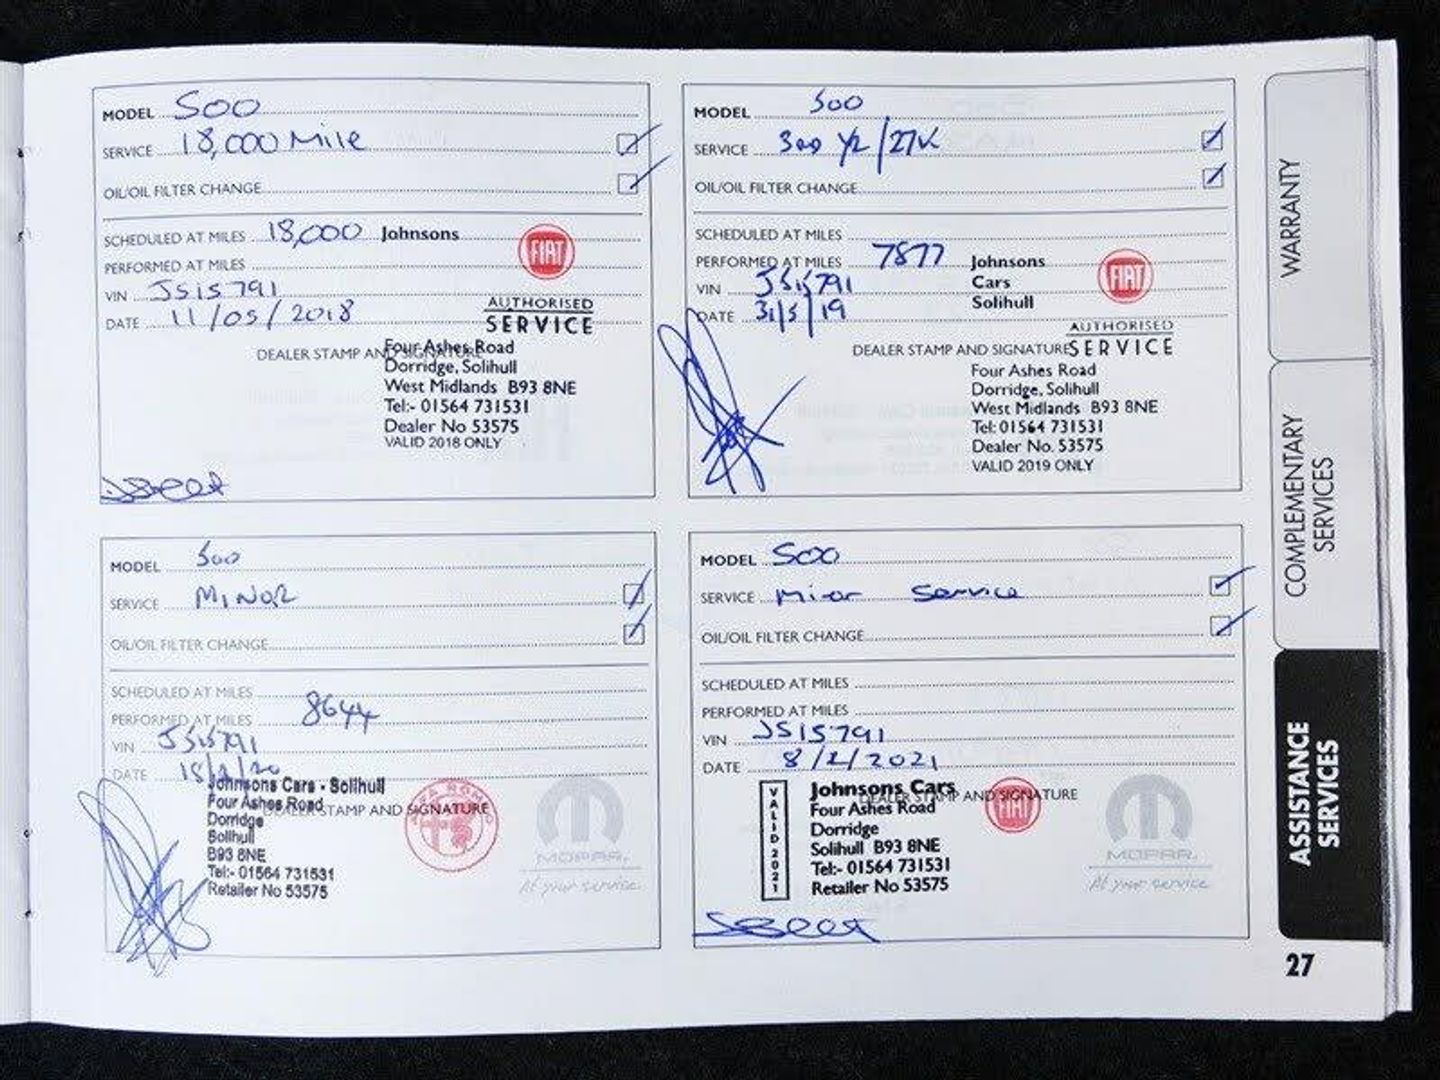 MODEL 500
SERVICE 18,000 Mile
OIL/OIL FILTER CHANGE
SCHEDULED AT MILES 18,000
PERFORMED AT MILES
VIN JS15791
DATE 11/05/2018
DEALER STAMP AND SIGNATURE
Johnsons
FIAT
AUTHORISED
SERVICE
Four Ashes Road
Dorridge, Solihull
West Midlands B93 8NE
Tel:- 01564 731531
Dealer No 53575
VALID 2018 ONLY
MODEL 500
SERVICE 3rd Yr/27K
OIL/OIL FILTER CHANGE
SCHEDULED AT MILES
PERFORMED AT MILES 7877
VIN JS15791
DATE 31/5/19
DEALER STAMP AND SIGNATURE
Johnsons
Cars
Solihull
FIAT
AUTHORISED
SERVICE
Four Ashes Road
Dorridge, Solihull
West Midlands B93 8NE
Tel: 01564 731531
Dealer No. 53575
VALID 2019 ONLY
MODEL 500
SERVICE MINOR
OIL/OIL FILTER CHANGE
SCHEDULED AT MILES
PERFORMED AT MILES 8644
VIN JS15791
DATE
DEALER STAMP AND SIGNATURE
Johnsons Cars - Solihull
Four Ashes Road
Dorridge
Solihull
B93 8NE
Tel:- 01564 731531
Retailer No 53575
ALFA ROMEO
MOPAR.
At your service.
MODEL 500
SERVICE Minor Service
OIL/OIL FILTER CHANGE
SCHEDULED AT MILES
PERFORMED AT MILES
VIN JS15791
DATE 8/2/2021
DEALER STAMP AND SIGNATURE
VALID 2021
Johnsons Cars
Four Ashes Road
Dorridge
Solihull B93 8NE
Tel:- 01564 731531
Retailer No 53575
FIAT
MOPAR.
At your service
WARRANTY
COMPLEMENTARY
SERVICES
ASSISTANCE
SERVICES
27